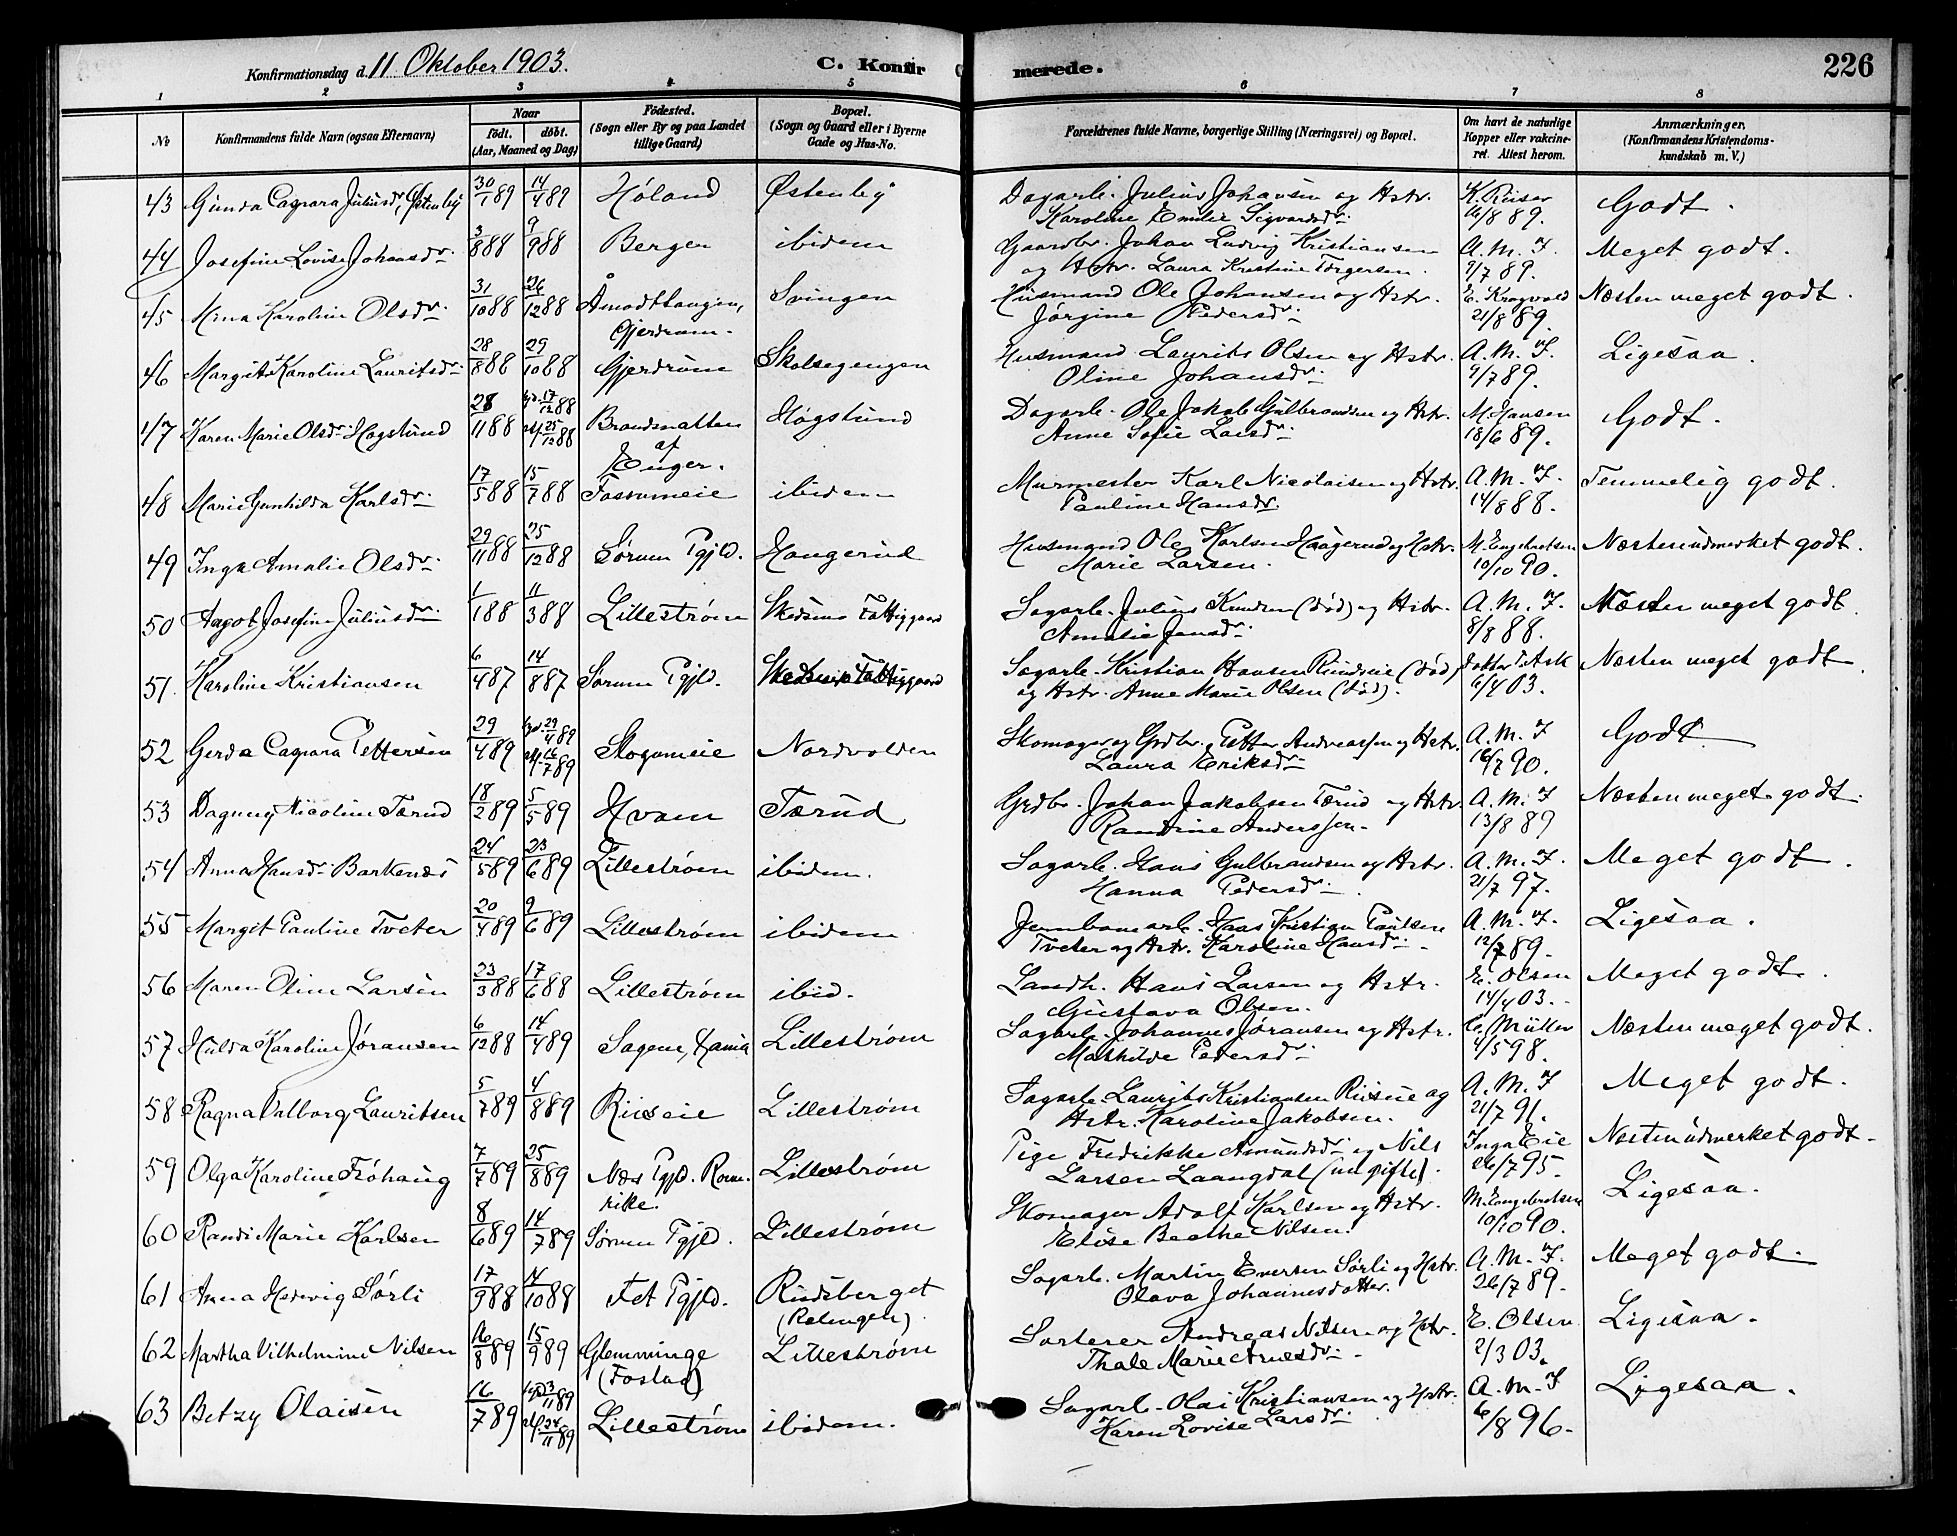 Konfirmationsdag d. 11 Oktober 1903.
C. Konfirmerede.
226
1 2 3 4 5 6 7 8
No
Konfirmandens fulde Navn (ogsaa Efternavn)
Naar
födt. döbt.
(Aar, Maaned og Dag)
Födested.
(Sogn eller By og paa Landet
tillige Gaard)
Bopæl.
(Sogn og Gaard eller i Byerne
Gade og Hus-No.
Forældrenes fulde Navne, borgerlige Stilling (Næringsvei) og Bopæl.
Om havt de naturlige
Kopper eller vakcine-
ret. Attest herom.
Anmærkninger.
(Konfirmandens Kristendoms-
kundskab m. V.)
43 Gunda Caspara Juliusdr. Østenby 30/1 89 14/4 89 Høland Østenby Dagarb. Julius Johansen og Hstr. K. Riiser Godt.
Karoline Emilie Sigvardsdr. 16/8 89.
44 Josefine Lovise Johansdr. 3/8 88 9/9 88 Berger ibidem Gaardbr. Johan Ludvig Kristiansen A. M. F. Meget godt.
og Hstr. Laura Kristine Torgersen. 9/7 89.
45 Mina Karoline Olsdr. 31/10 88 26/12 88 Åmodthaugen, Svingen Husmand Ole Johansen og Hstr. E. Kragvold Næsten meget godt.
Gjerdrum. Jørgine Pedersdr. 21/8 89.
46 Margit Karoline Lauritsdr. 28/8 88 29/10 88 Gjerdrum Skolsegengen Husmand Laurits Olsen og Hstr. A. M. F. Ligesaa.
Oline Johansdr. 9/7 89.
47 Karen Marie Olsdr. Høgslund 28/11 88 hjd. 17/12 88 Brandnatten Høgslund Dagarb. Ole Jakob Gulbrandsen og Hstr. M. Hansen Godt.
25/12 88 af Enger. Anne Sofie Larsdr. 18/6 89.
48 Marie Gunhilda Karlsdr. 17/5 88 15/7 88 Fossumeie ibidem Murmester Karl Nicolaisen og Hstr. A. M. F. Temmelig godt.
Pauline Hansdr. 14/8 88.
49 Inga Amalie Olsdr. 29/11 88 25/12 88 Sørum Pgjld. Haugerud Husmand Ole Karlsen Haagerud og Hstr. M. Engebretsen Næsten udmerket godt.
Marie Larsen. 10/10 90.
50 Aagot Josefine Juliusdr. 1/1 88 11/3 88 Lillestrøm Skedsmo Fattiggaard Sagarb. Julius Knudsen (død) og Hstr. A. M. F. Næsten meget godt.
Amalie Jensdr. 8/8 88.
51. Karoline Kristiansen 6/4 87 14/8 87 Sørum Pgjld. Skedsmo Fattiggaard Sagarb. Kristian Hansen Rundeie (død) Doktor Ask Næsten meget godt.
og Hstr. Anne Marie Olsen (død). 6/4 03.
52 Gerda Caspara Pettersen 29/4 89 hjd. 29/4 89 Skogumeie Nordvolden Skomager og Grdbr. Petter Andreassen og Hstr. A. M. F Godt
16/7 89 Laura Eriksdr. 16/7 90.
53 Dagny Nicoline Tærud 18/2 89 5/5 89 Hvam Tærud Grdbr. Johan Jakobsen Tærud og Hstr. A. M. F Næsten meget godt.
Randine Anderssen. 13/8 89
54 Anna Hansdr. Barkenæs 24/5 89 23/6 89 Lillestrøm ibidem. Sagarb. Hans Gulbrandsen og Hstr. A. M. F. Meget godt.
Hanna Pedersdr. 21/7 97.
55 Margit Pauline Tveter 20/4 89 9/6 89 Lillestrøm ibidem Jernbanearb. Hans Kristian Paulsen A. M. F. Ligesaa.
Tveter og Hstr. Karoline Hansdr. 12/7 89.
56 Maren Oline Larsen 23/3 88 17/6 88 Lillestrøm ibid. Landh. Hans Larsen og Hstr. E. Olsen Meget godt.
Gustava Olsen. 14/4 03.
57 Hulda Karoline Jøransen 6/12 88 14/4 89 Sagene, Xania Lillestrøm Sagarb. Johannes Jøransen og Hstr. C. Müller Næsten meget godt.
Mathilde Pedersdr. 4/5 98.
58 Ragna Valborg Lauritsen 5/7 89 4/8 89 Riiseie Lillestrøm Sagarb. Laurits Kristiansen Riiseie og A. M. F Meget godt.
Hstr. Karoline Jakobsen. 21/7 91.
59 Olga Karoline Frøhaug 7/7 89 25/8 89 Næs Pgjld. Rome- Lillestrøm Pige Fredrikke Amundsdr. og Nils Inga Eie Næsten udmerket godt.
rike. Larsen Laangdal (uægifte). 26/7 95.
60 Randi Marie Karlsen 8/6 89 14/7 89 Sørum Pgjld. Lillestrøm Skomager Adolf Karlsen og Hstr. M. Engebretsen Ligesaa.
Elise Beathe Nilsen. 10/10 90.
61 Anna Hedevig Sørli 17/9 88 14/10 88 Fet Pgjld. Riidsberget Sagarb. Martin Evensen Sørli og Hstr. A. M. F. Meget godt.
(Relingen). Olava Johannesdatter. 26/7 89.
62 Martha Vilhelmine Nilsen 16/8 89 15/9 89 Glemminge Lillestrøm Sorterer Andreas Nilsen og Hstr. E. Olsen Ligesaa.
(Fostad) Thale Marie Arnesdr. 2/3 03.
63 Betzy Olaisen 16/7 89 hjd 3/11 89 Lillestrøm ibidem. Sagarb. Olai Kristiansen og Hstr. A. M. F Ligesaa.
24/11 89 Karen Lovise Larsdr. 6/8 96.